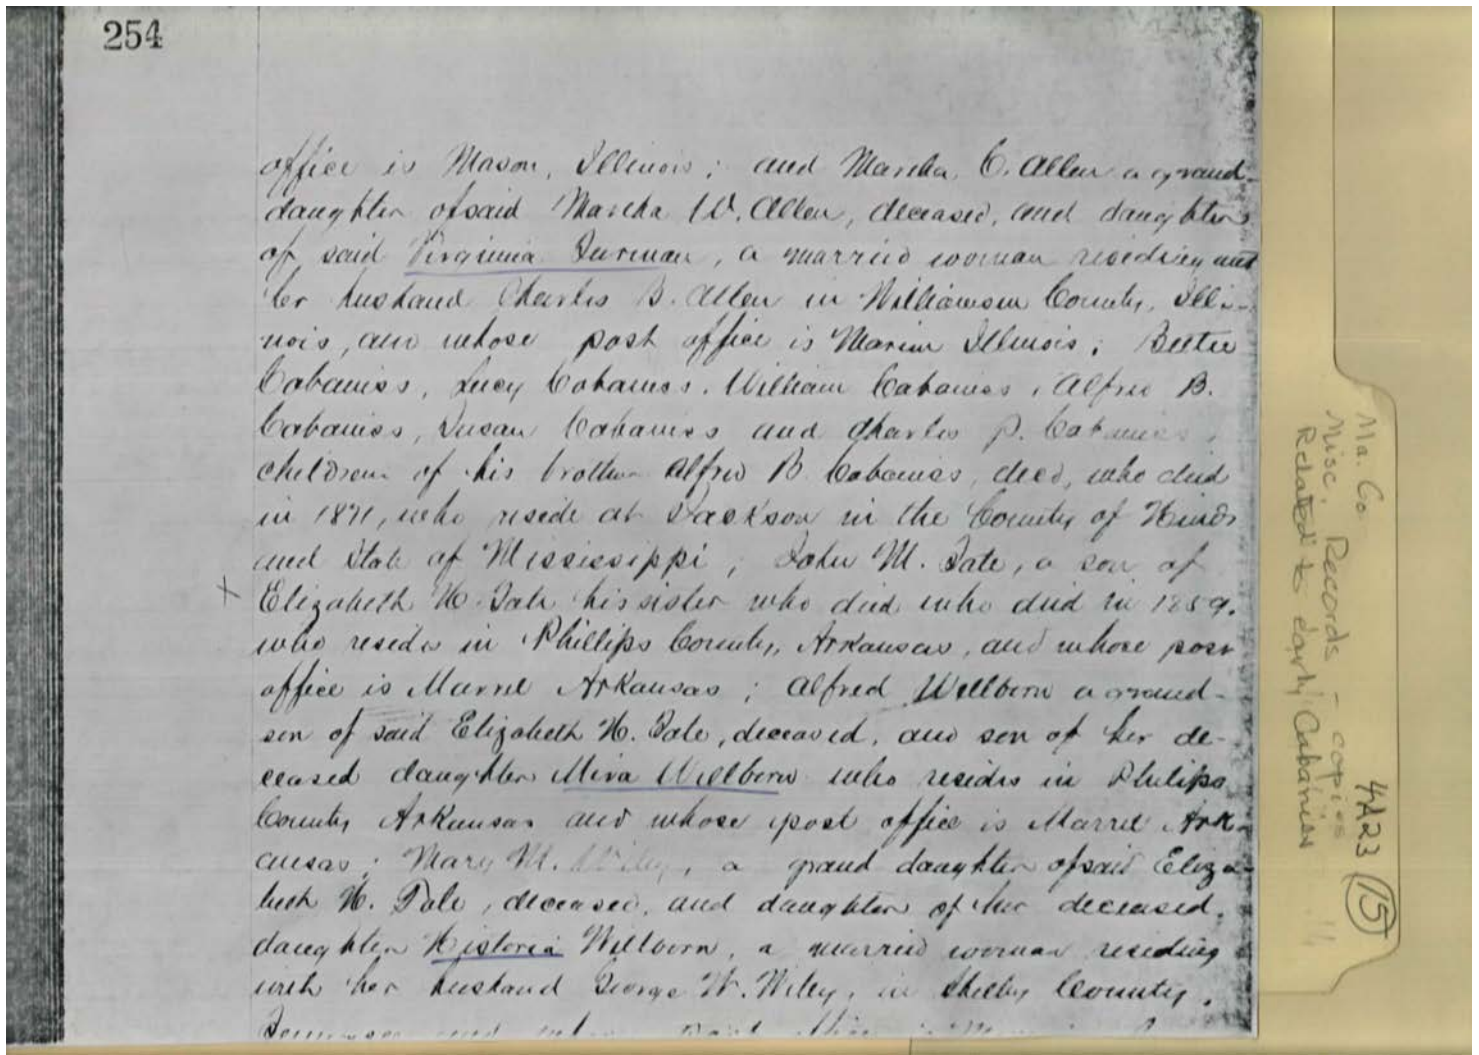 254
office is Mason, Illinois; and Martha C. Allen a grand-
daughter of said Martha W. Allen, deceased, and daughter
of said Virginia Furman, a married woman residing and
her husband Charles B. Allen in Williamson County, Illi-
nois, and whose post office is Marion Illinois; Bettie
Cabaniss, Lucy Cabaniss, William Cabaniss, Alfred B.
Cabaniss, Susan Cabaniss and Charles P. Cabaniss,
children of his brother Alfred B Cabaniss, decd, who died
in 1871, who reside at Jackson in the County of Hinds
and State of Mississippi; John M. Tate, a son of
x Elizabeth H. Tate his sister who died who died in 1859.
who resides in Phillips County, Arkansas, and whose post
office is Marvel Arkansas; Alfred Wellborn a grand-
son of said Elizabeth H. Tate, deceased, and son of her de-
ceased daughter Mira Wellborn who resides in Philips
County Arkansas and whose post office is Marvel Ark-
ansas; Mary M. Wiley, a grand daughter of said Eliza-
beth H. Tate, deceased, and daughter of her deceased
daughter Historia Wellborn, a married woman residing
with her husband George W. Wiley, in Shelby County,
Ma. Co.
Misc. Records - copies
Related to early Cabaniss
4A23 (15)